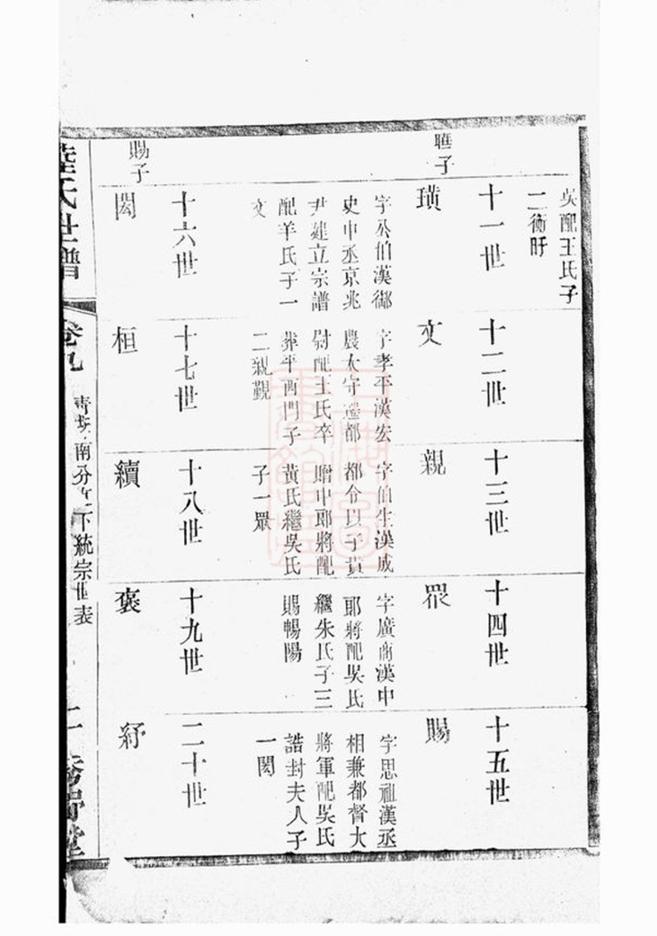 吳配王氏子
二衡盱
聃子
十一世
璜
字公伯漢御
史中丞京兆
尹建立宗譜
配羊氏子一
文
十二世
文
字孝平漢宏
農太守遷都
尉配王氏卒
葬平西門子
二親覲
十三世
親
字伯生漢成
都令以子貴
贈中郎將配
黃氏繼吳氏
子一眾
十四世
眾
字廣南漢中
郎將配吳氏
繼朱氏子三
賜暢陽
十五世
賜
字思祖漢丞
相兼都督大
將軍配吳氏
誥封夫人子
一閎
賜子
十六世
閎
十七世
桓
十八世
續
十九世
褒
二十世
紆
陸氏世譜
卷九
南分
下統宗世表
二